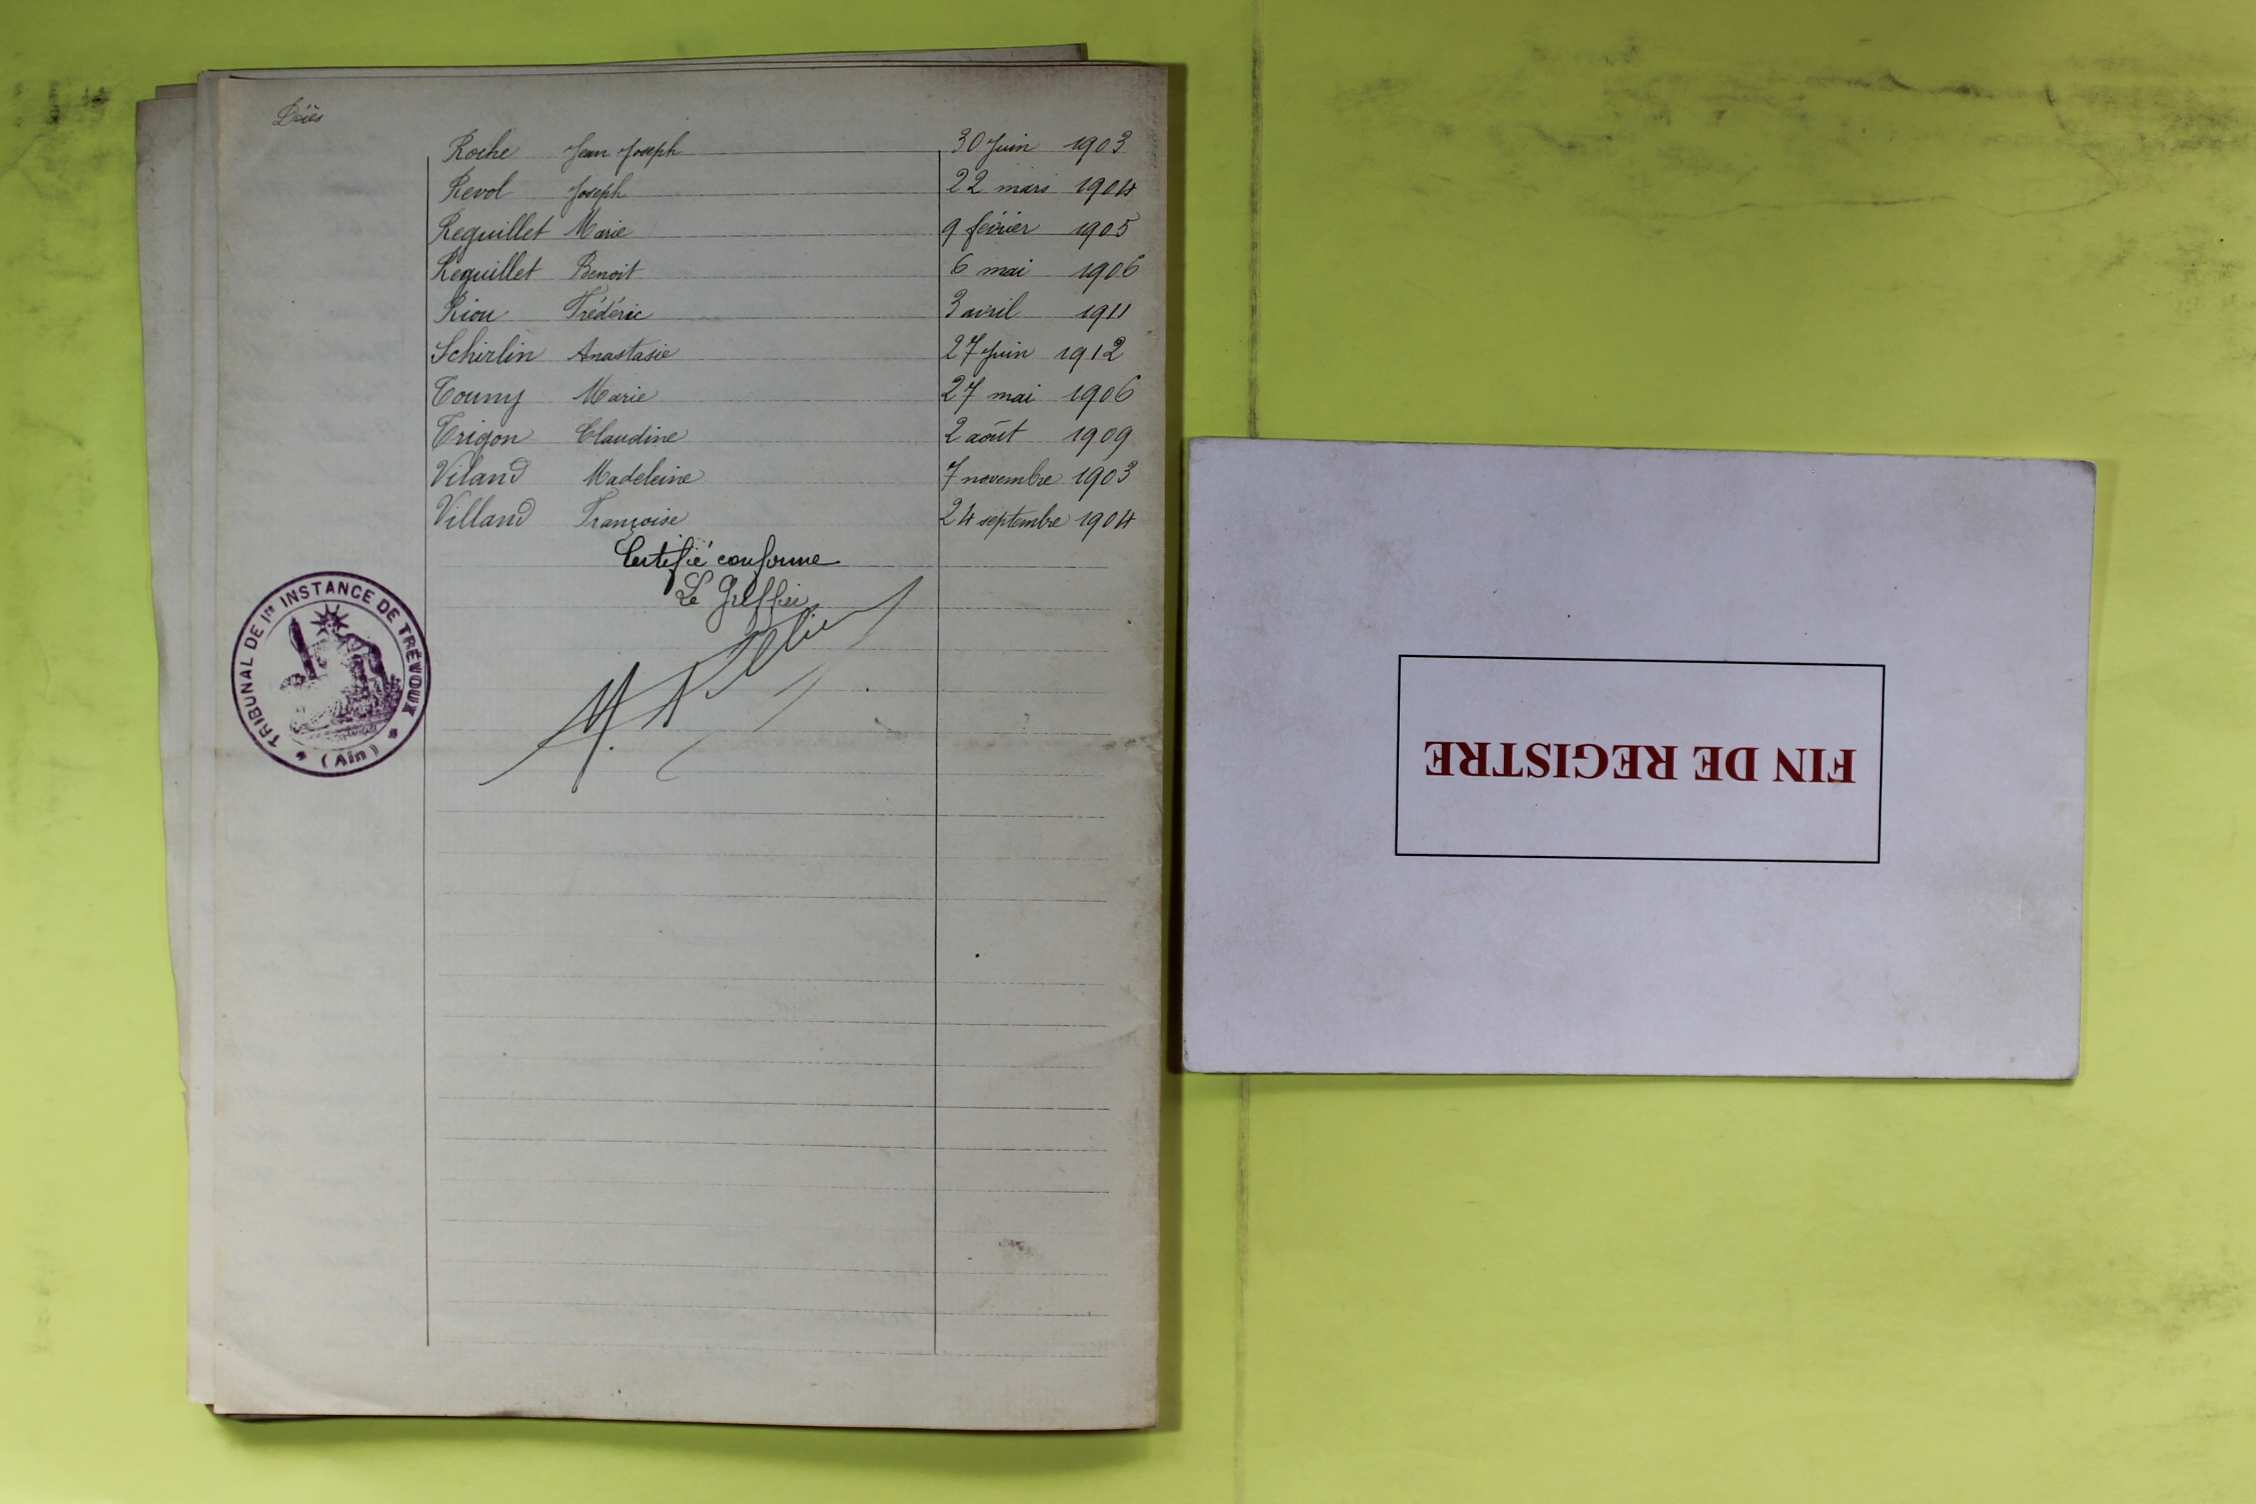 Décès
Roche Jean Joseph 30 Juin 1903
Revol Joseph 22 mars 1904
Reguillet Marie 9 février 1905
Reguillet Benoit 6 mai 1906
Riou Frédéric 3 avril 1911
Schirlin Anastasie 27 Juin 1912
Tourny Marie 27 mai 1906
Trigon Claudine 2 août 1909
Viland Madeleine 7 novembre 1903
Villand Françoise 24 septembre 1904
Certifié conforme
Le Greffier
TRIBUNAL DE 1re INSTANCE DE TRÉVOUX
(Ain)
FIN DE REGISTRE